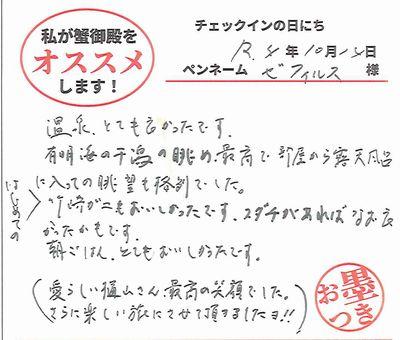 私が蟹御殿を
オススメ
します!
チェックインの日にち
R.5年10月13日
ペンネーム ゼフィルス 様
温泉、とても良かったです。
有明海の干潟の眺め、最高で部屋から露天風呂
に入っての眺望も格別でした。
はじめての
竹崎ガニもおいしかったです、スダチがあればなお良
かったかもです。
朝ごはん、とてもおいしかったです。
(愛らしい樋山さん、最高の笑顔でした。
さらに楽しい旅にさせて頂きましたヨ!!)
お墨つき